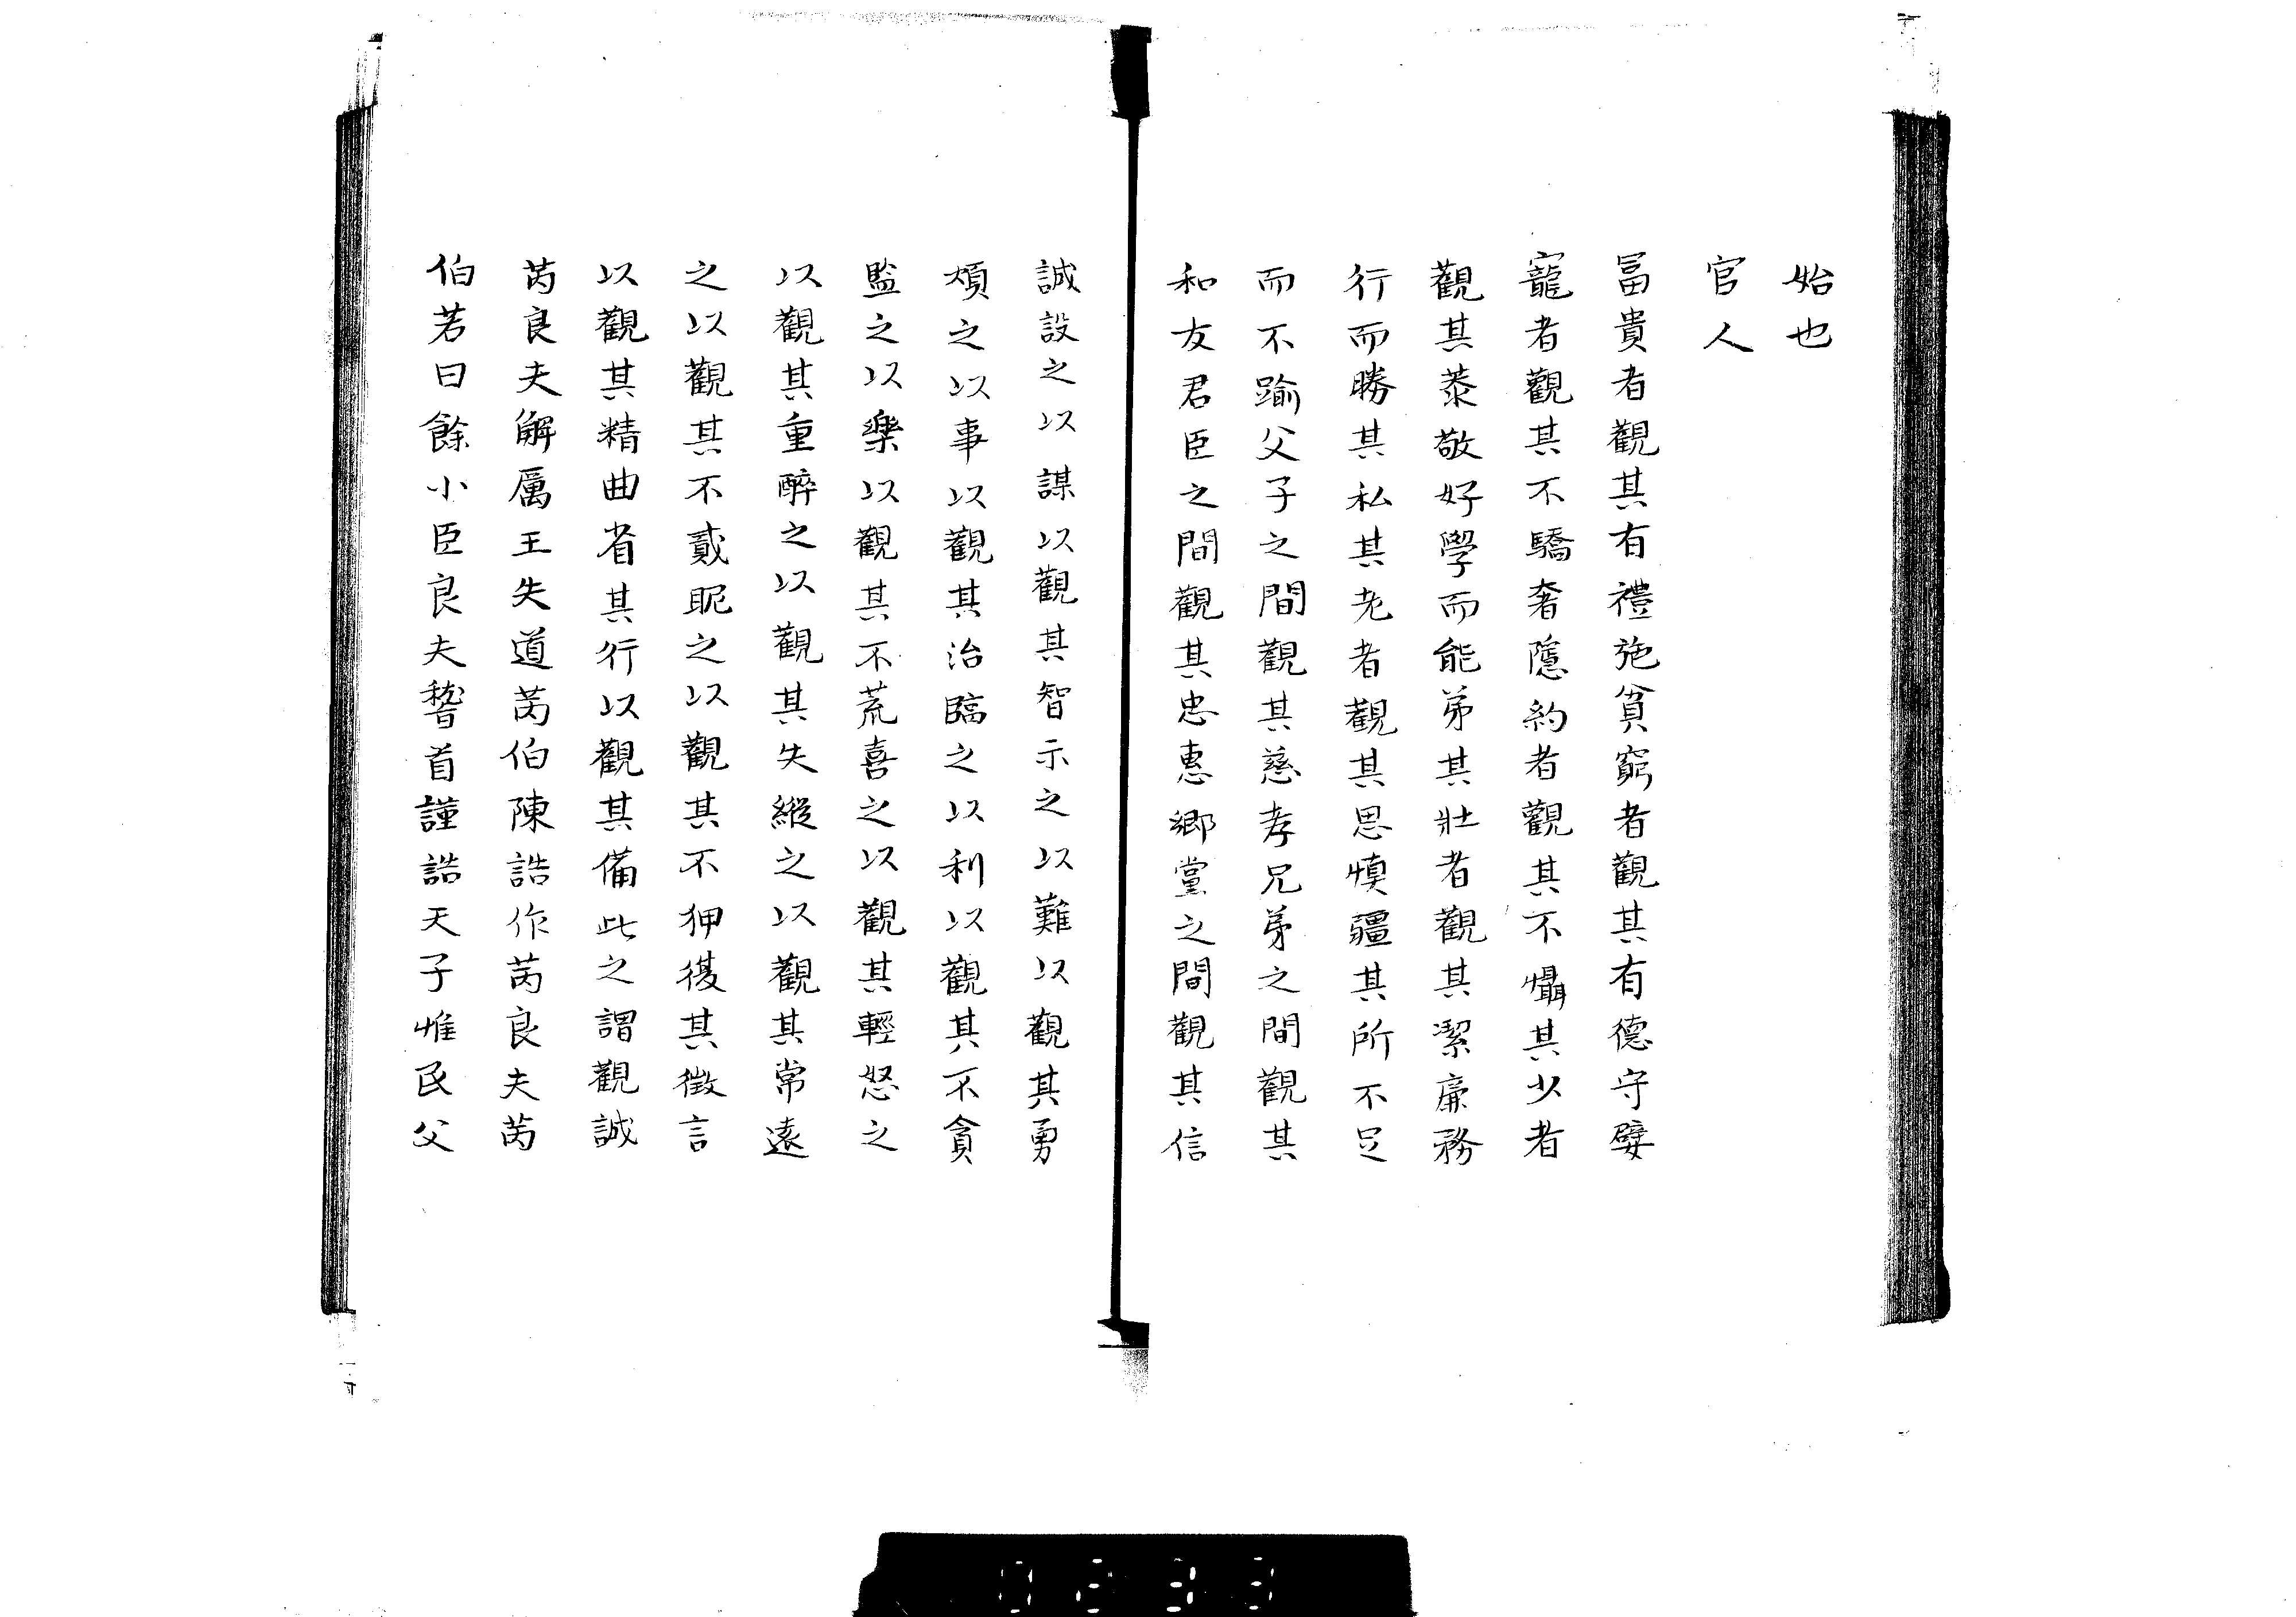 始也
官人
冨貴者觀其有禮施貧窮者觀其有德守嬖
寵者觀其不驕奢隱約者觀其不懾其少者
觀其恭敬好學而能弟其壯者觀其潔廉務
行而勝其私其老者觀其思慎疆其所不足
而不踰父子之間觀其慈孝兄弟之間觀其
和友君臣之間觀其忠惠鄉黨之間觀其信
誠設之以謀以觀其智示之以難以觀其勇
煩之以事以觀其治臨之以利以觀其不貪
監之以樂以觀其不荒喜之以觀其輕怒之
以觀其重醉之以觀其失縱之以觀其常遠
之以觀其不貳昵之以觀其不狎復其徵言
以觀其精曲省其行以觀其備此之謂觀誠
芮良夫解厲王失道芮伯陳誥作芮良夫芮
伯若曰餘小臣良夫稽首謹誥天子惟民父
0233